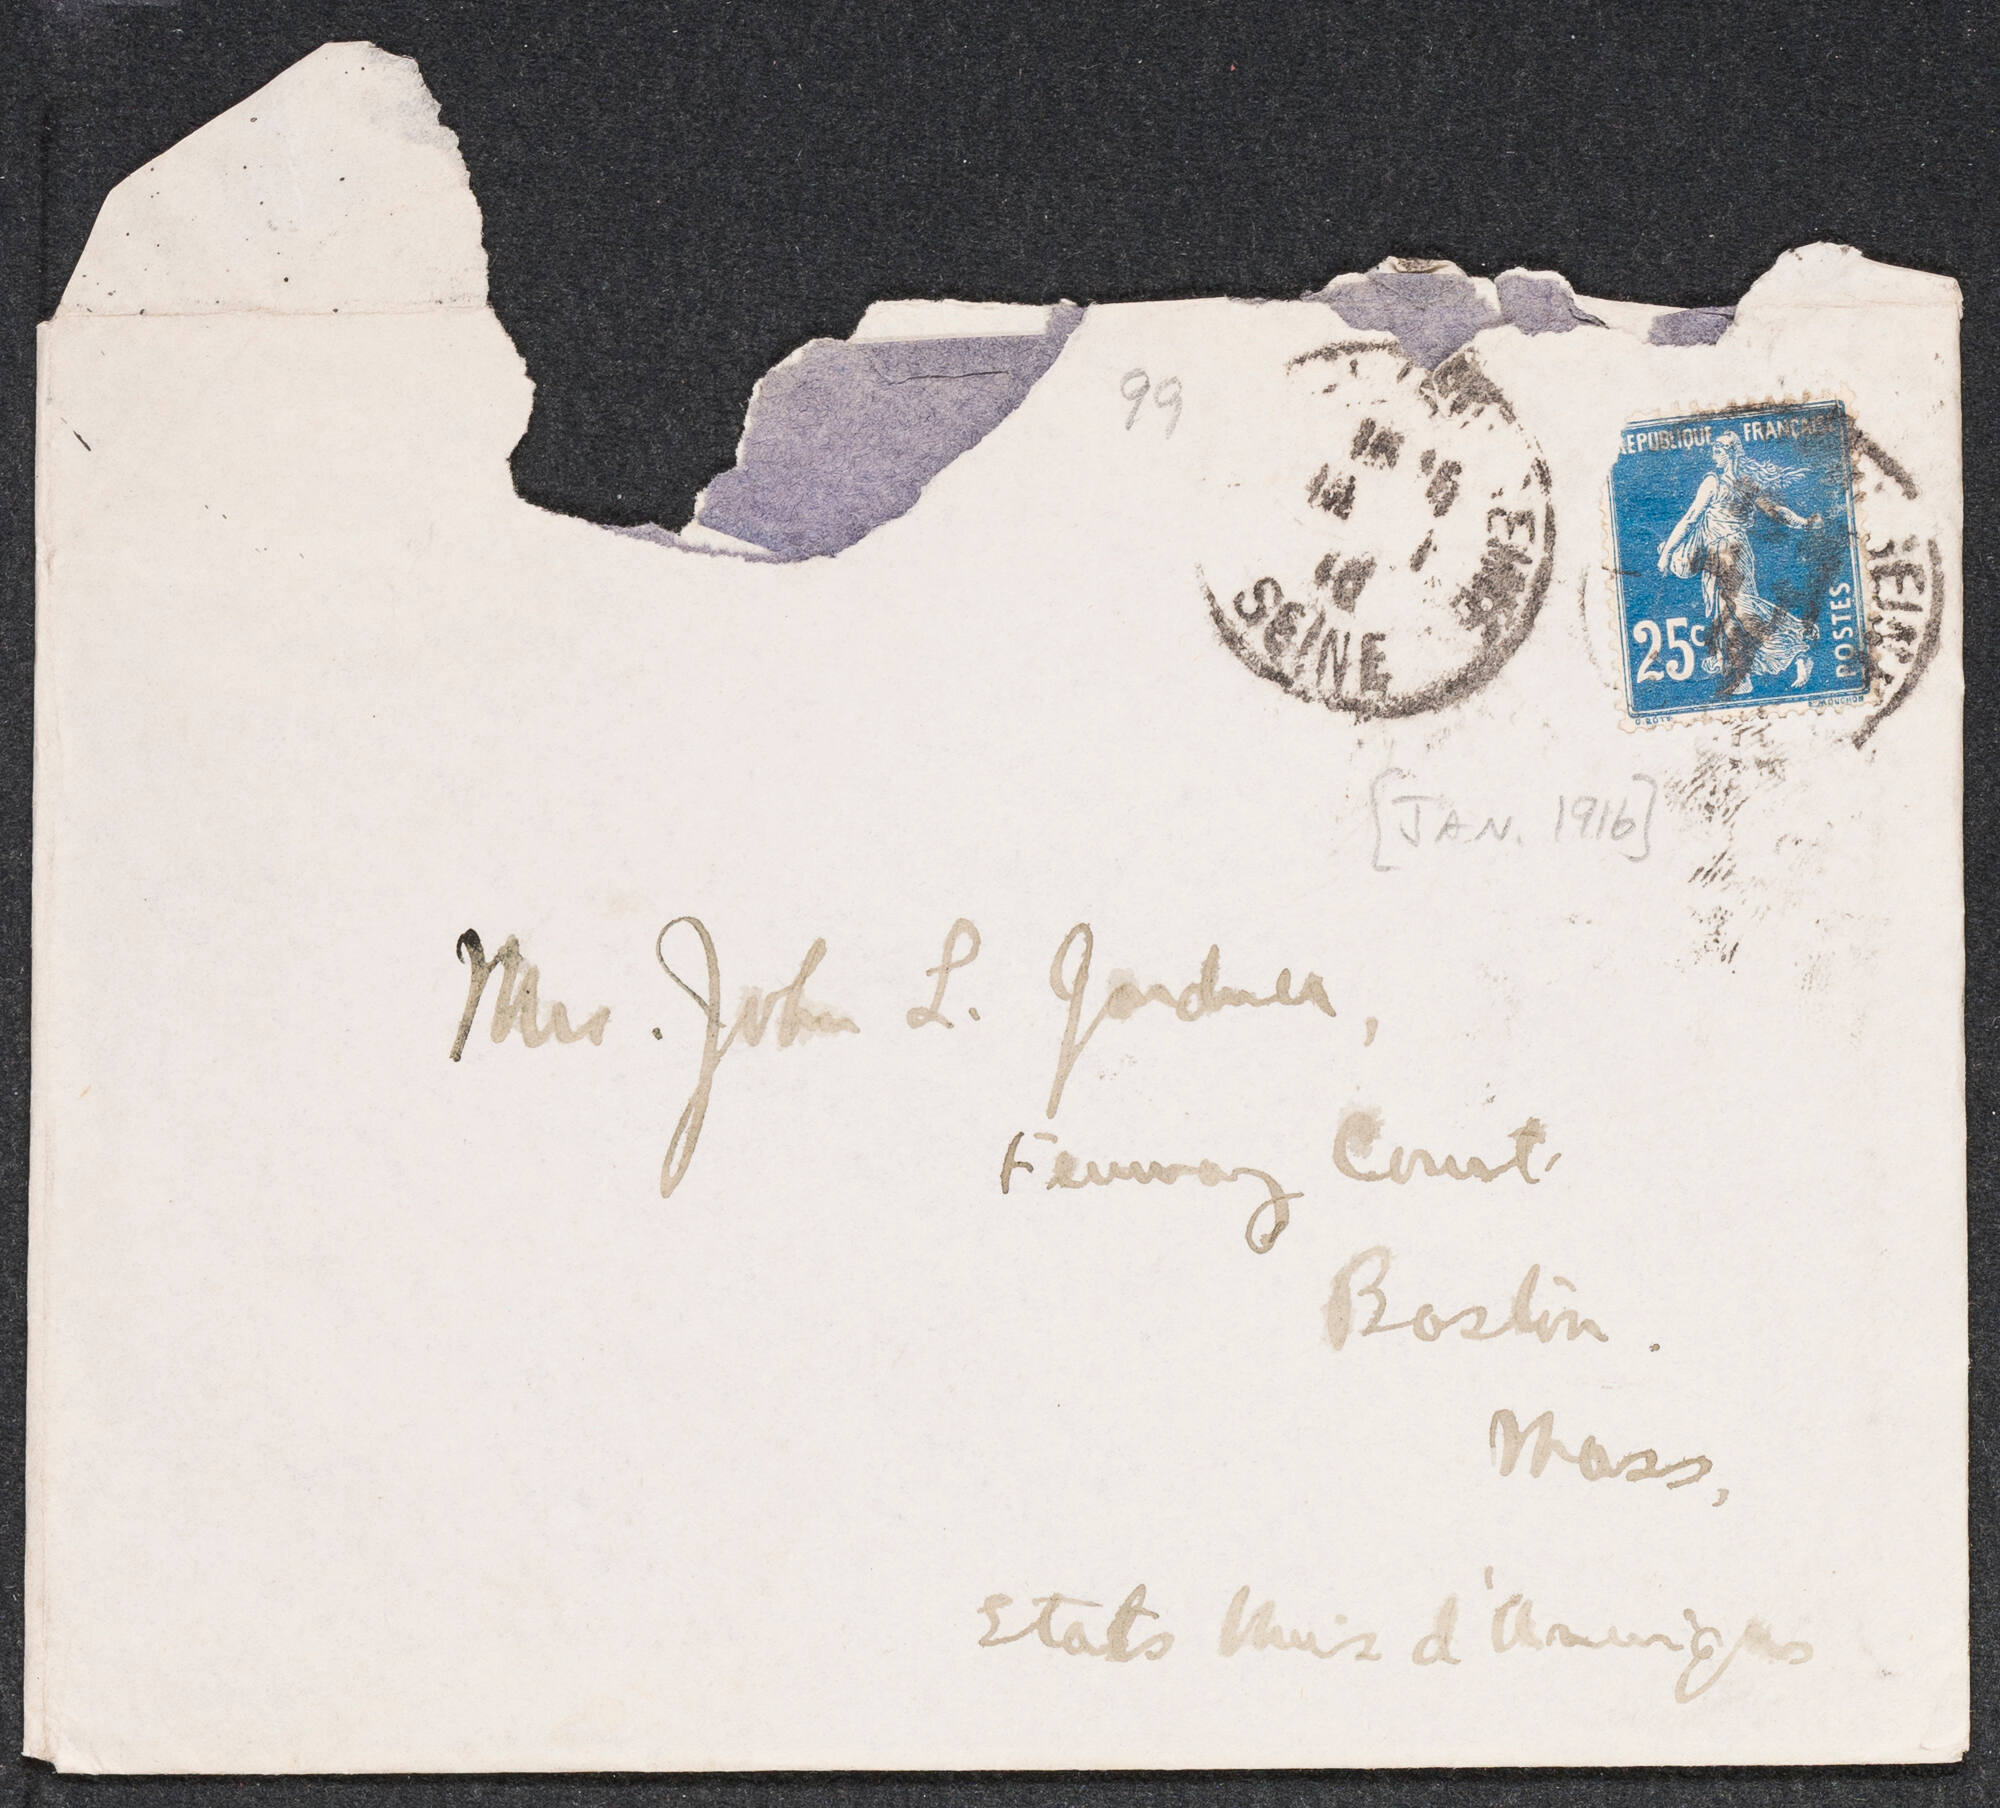 99
SEINE
REPUBLIQUE FRANÇAISE
25c
POSTES
O. ROTY
E. MOUCHON
SEINE
[JAN. 1916]
Mrs. John L. Gardner,
Fenway Court
Boston.
Mass,
Etats Unis d'Amerique